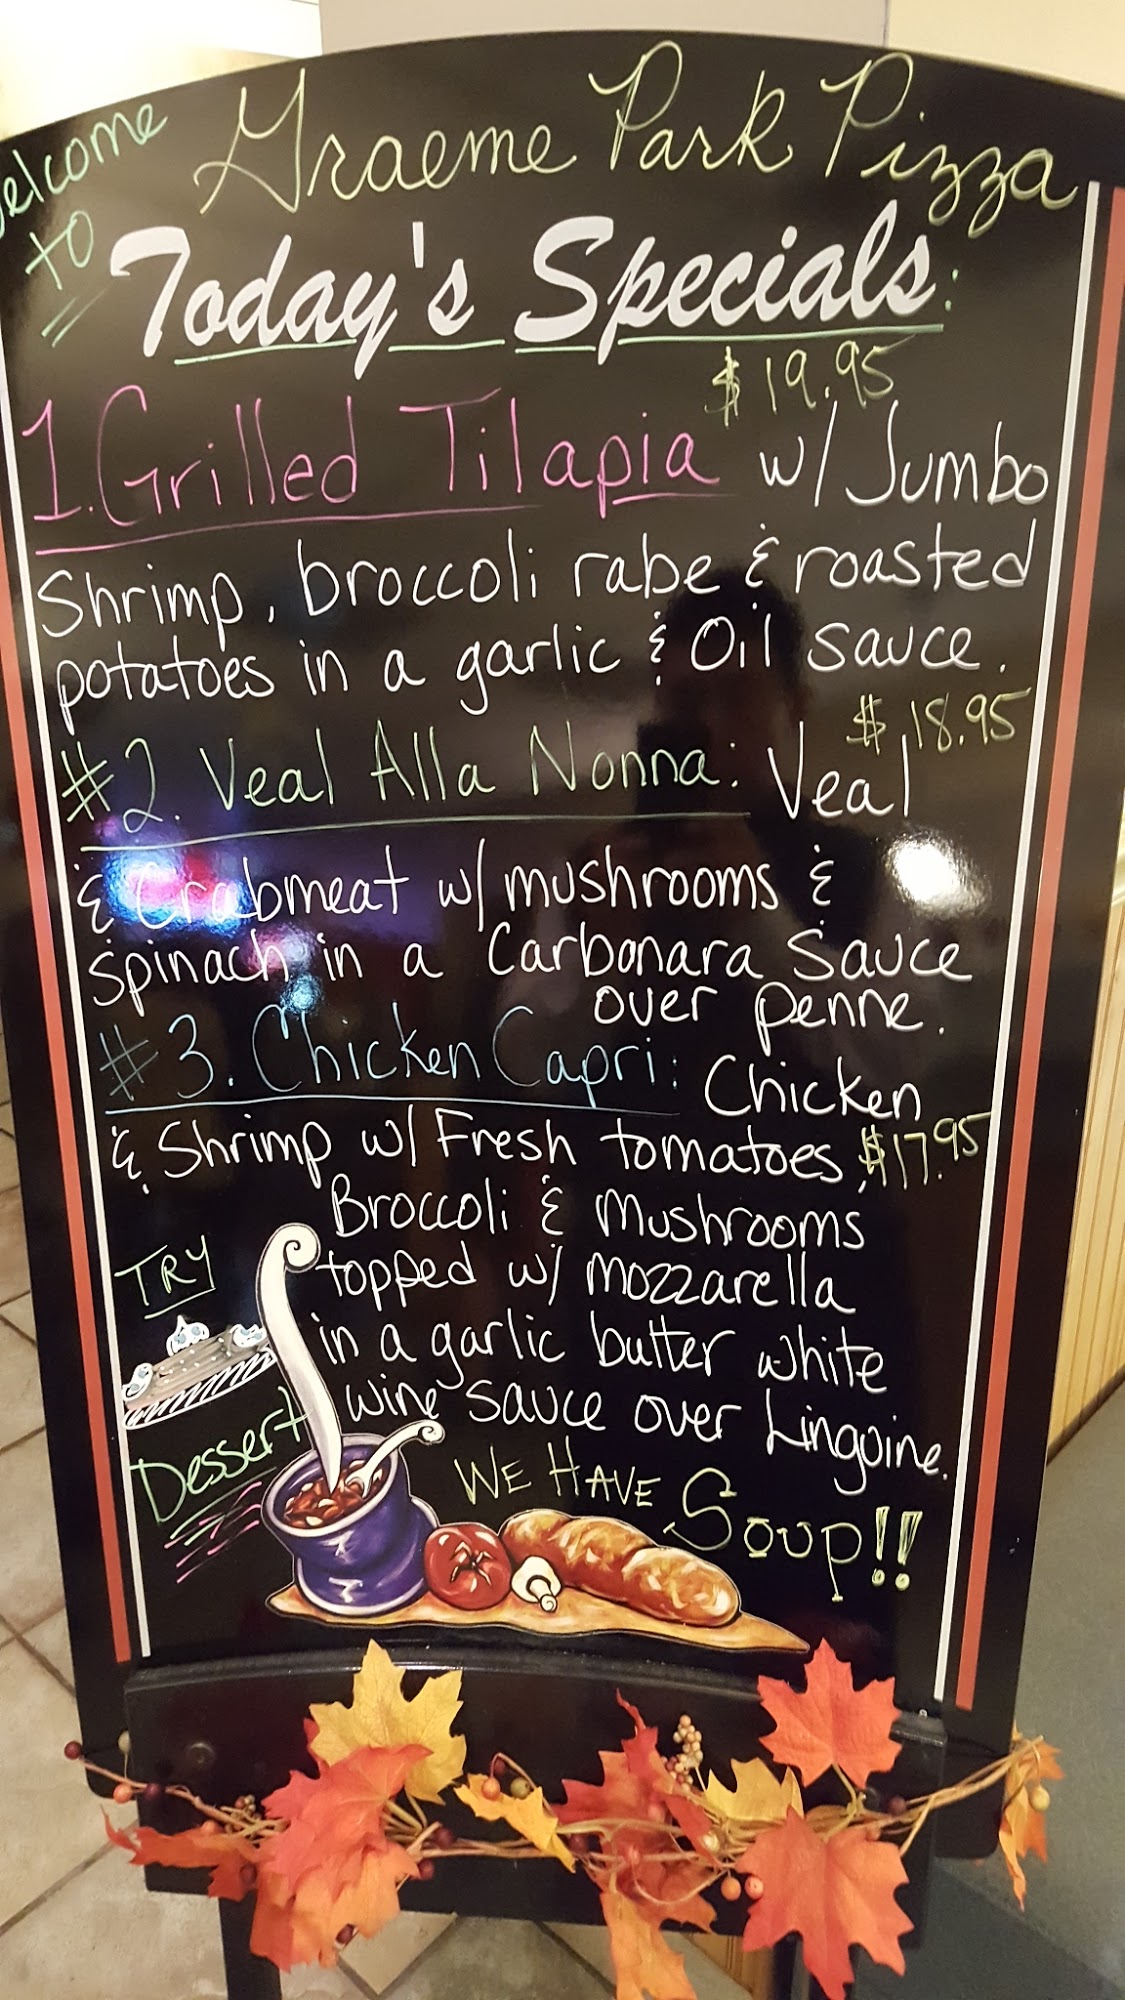 Welcome to Graeme Park Pizza
Today's Specials:
$19.95
1. Grilled Tilapia w/ Jumbo
Shrimp, broccoli rabe & roasted
potatoes in a garlic & Oil sauce.
$18.95
#2. Veal Alla Nonna: Veal
& Crabmeat w/ mushrooms &
spinach in a Carbonara Sauce
over penne.
#3. Chicken Capri: Chicken
& Shrimp w/ Fresh tomatoes, $17.95
Broccoli & Mushrooms
topped w/ mozzarella
in a garlic butter white
wine sauce over Linguine.
TRY
Dessert
WE HAVE Soup!!